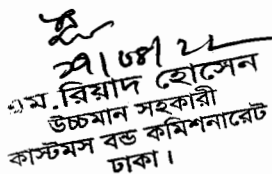 এম. রিয়াদ হোসেন
উচ্চমান সহকারী
কাস্টমস বন্ড কমিশনারেট
ঢাকা।